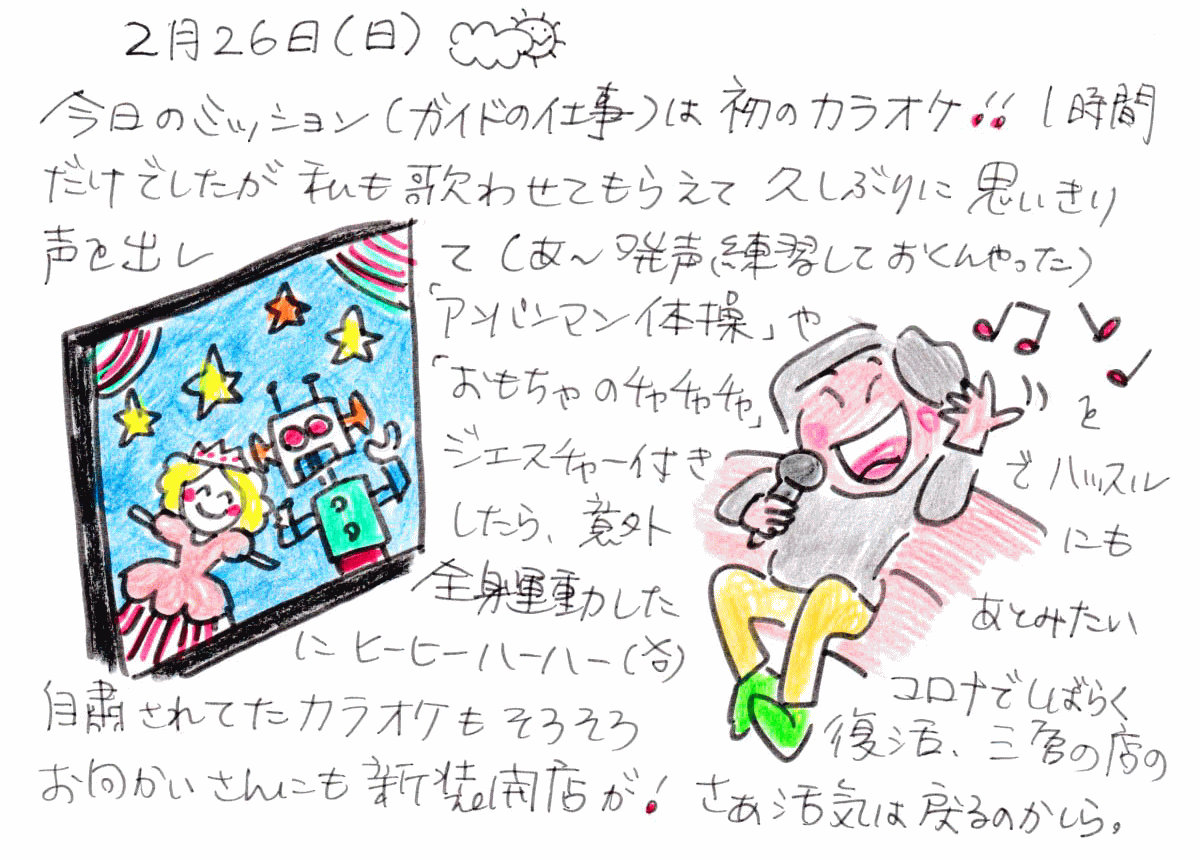 2月26日(日)
今日のミッション(ガイドの仕事)は 初のカラオケ!! 1時間
だけでしたが 私も歌わせてもらえて 久しぶりに 思いきり
声を出し て (あ〜発声練習しておくんやった)
「アンパンマン体操」や
「おもちゃのチャチャチャ」 を
ジェスチャー付き でハッスル
したら、意外 にも
全身運動した あとみたい
にヒーヒーハーハー(笑) コロナでしばらく
自粛されてたカラオケもそろそろ 復活、三宮の店の
お向かいさんにも新装開店が! さあ活気は戻るのかしら。